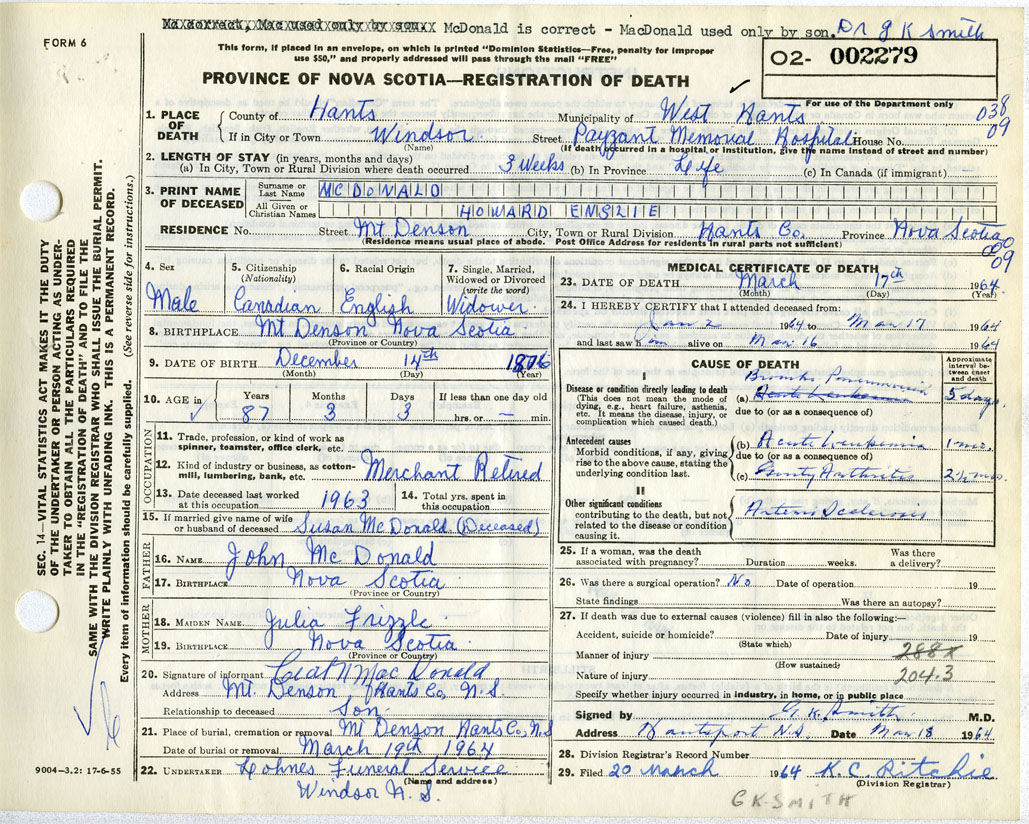 Mc correct, Mac used only by son.. McDonald is correct - MacDonald used only by son. Dr G K Smith
FORM 6
This form, if placed in an envelope, on which is printed "Dominion Statistics—Free, penalty for improper
use $50," and properly addressed will pass through the mail "FREE"
O2- 002279
PROVINCE OF NOVA SCOTIA—REGISTRATION OF DEATH
For use of the Department only
1. PLACE OF DEATH
County of Hants Municipality of West Hants 038
If in City or Town Windsor Street Payzant Memorial Hospital House No. 09
(Name) (If death occurred in a hospital or institution, give the name instead of street and number)
2. LENGTH OF STAY (in years, months and days)
(a) In City, Town or Rural Division where death occurred 3 Weeks (b) In Province Life (c) In Canada (if immigrant)
3. PRINT NAME OF DECEASED
Surname or Last Name MCDONALD
All Given or Christian Names HOWARD ENSLIE
RESIDENCE No. Street Mt Denson City, Town or Rural Division Hants Co. Province Nova Scotia
(Residence means usual place of abode. Post Office Address for residents in rural parts not sufficient)
000
09
4. Sex 5. Citizenship (Nationality) 6. Racial Origin 7. Single, Married, Widowed or Divorced (write the word)
Male Canadian English Widower
8. BIRTHPLACE Mt Denson Nova Scotia
(Province or Country)
9. DATE OF BIRTH December 14th 1876
(Month) (Day) (Year)
10. AGE in Years Months Days If less than one day old
87 3 3 hrs. or — min.
OCCUPATION
11. Trade, profession, or kind of work as
spinner, teamster, office clerk, etc.
12. Kind of industry or business, as cotton-
mill, lumbering, bank, etc. Merchant Retired
13. Date deceased last worked at this occupation 1963 14. Total yrs. spent in this occupation
15. If married give name of wife
or husband of deceased Susan McDonald (Deceased)
FATHER
16. NAME John McDonald
17. BIRTHPLACE Nova Scotia
(Province or Country)
MOTHER
18. MAIDEN NAME Julia Frizzle
19. BIRTHPLACE Nova Scotia
(Province or Country)
20. Signature of informant MacDonald
Address Mt. Denson, Hants Co, N.S.
Relationship to deceased Son
21. Place of burial, cremation or removal Mt Denson Hants Co, N.S
Date of burial or removal March 19th 1964
22. UNDERTAKER Lohnes Funeral Service
(Name and address)
Windsor N.S.
MEDICAL CERTIFICATE OF DEATH
23. DATE OF DEATH March 17th 1964
(Month) (Day) (Year)
24. I HEREBY CERTIFY that I attended deceased from:
Jan 2 1964 to Mar 17 1964
and last saw him alive on Mar 16 1964
CAUSE OF DEATH
Approximate interval between onset and death
I
Disease or condition directly leading to death
(This does not mean the mode of
dying, e.g., heart failure, asthenia,
etc. It means the disease, injury, or
complication which caused death.)
Broncho Pneumonia
(a) Acute Leukemia 5 days
due to (or as a consequence of)
Antecedent causes
Morbid conditions, if any, giving
rise to the above cause, stating the
underlying condition last.
(b) Acute Leukemia 1 mo.
due to (or as a consequence of)
(c) Gouty Arthritis 2½ mos.
II
Other significant conditions
contributing to the death, but not
related to the disease or condition
causing it.
Arterio Sclerosis
25. If a woman, was the death associated with pregnancy? Duration weeks. Was there a delivery?
26. Was there a surgical operation? No Date of operation 19
State findings Was there an autopsy?
27. If death was due to external causes (violence) fill in also the following:—
Accident, suicide or homicide? Date of injury 19
(State which)
Manner of injury 288x
(How sustained)
Nature of injury 204.3
Specify whether injury occurred in industry, in home, or in public place
Signed by G. K. Smith M.D.
Address Hantsport N.S. Date Mar 18 1964
28. Division Registrar's Record Number
29. Filed 20 March 1964 K. C. Ritchie
(Division Registrar)
GK-SMITH
SEC. 14—VITAL STATISTICS ACT MAKES IT THE DUTY
OF THE UNDERTAKER OR PERSON ACTING AS UNDER-
TAKER TO OBTAIN ALL THE PARTICULARS REQUIRED
IN THE "REGISTRATION OF DEATH" AND TO FILE THE
SAME WITH THE DIVISION REGISTRAR WHO SHALL ISSUE THE BURIAL PERMIT.
WRITE PLAINLY WITH UNFADING INK. THIS IS A PERMANENT RECORD.
Every item of information should be carefully supplied. (See reverse side for instructions.)
9004—3.2: 17-6-55